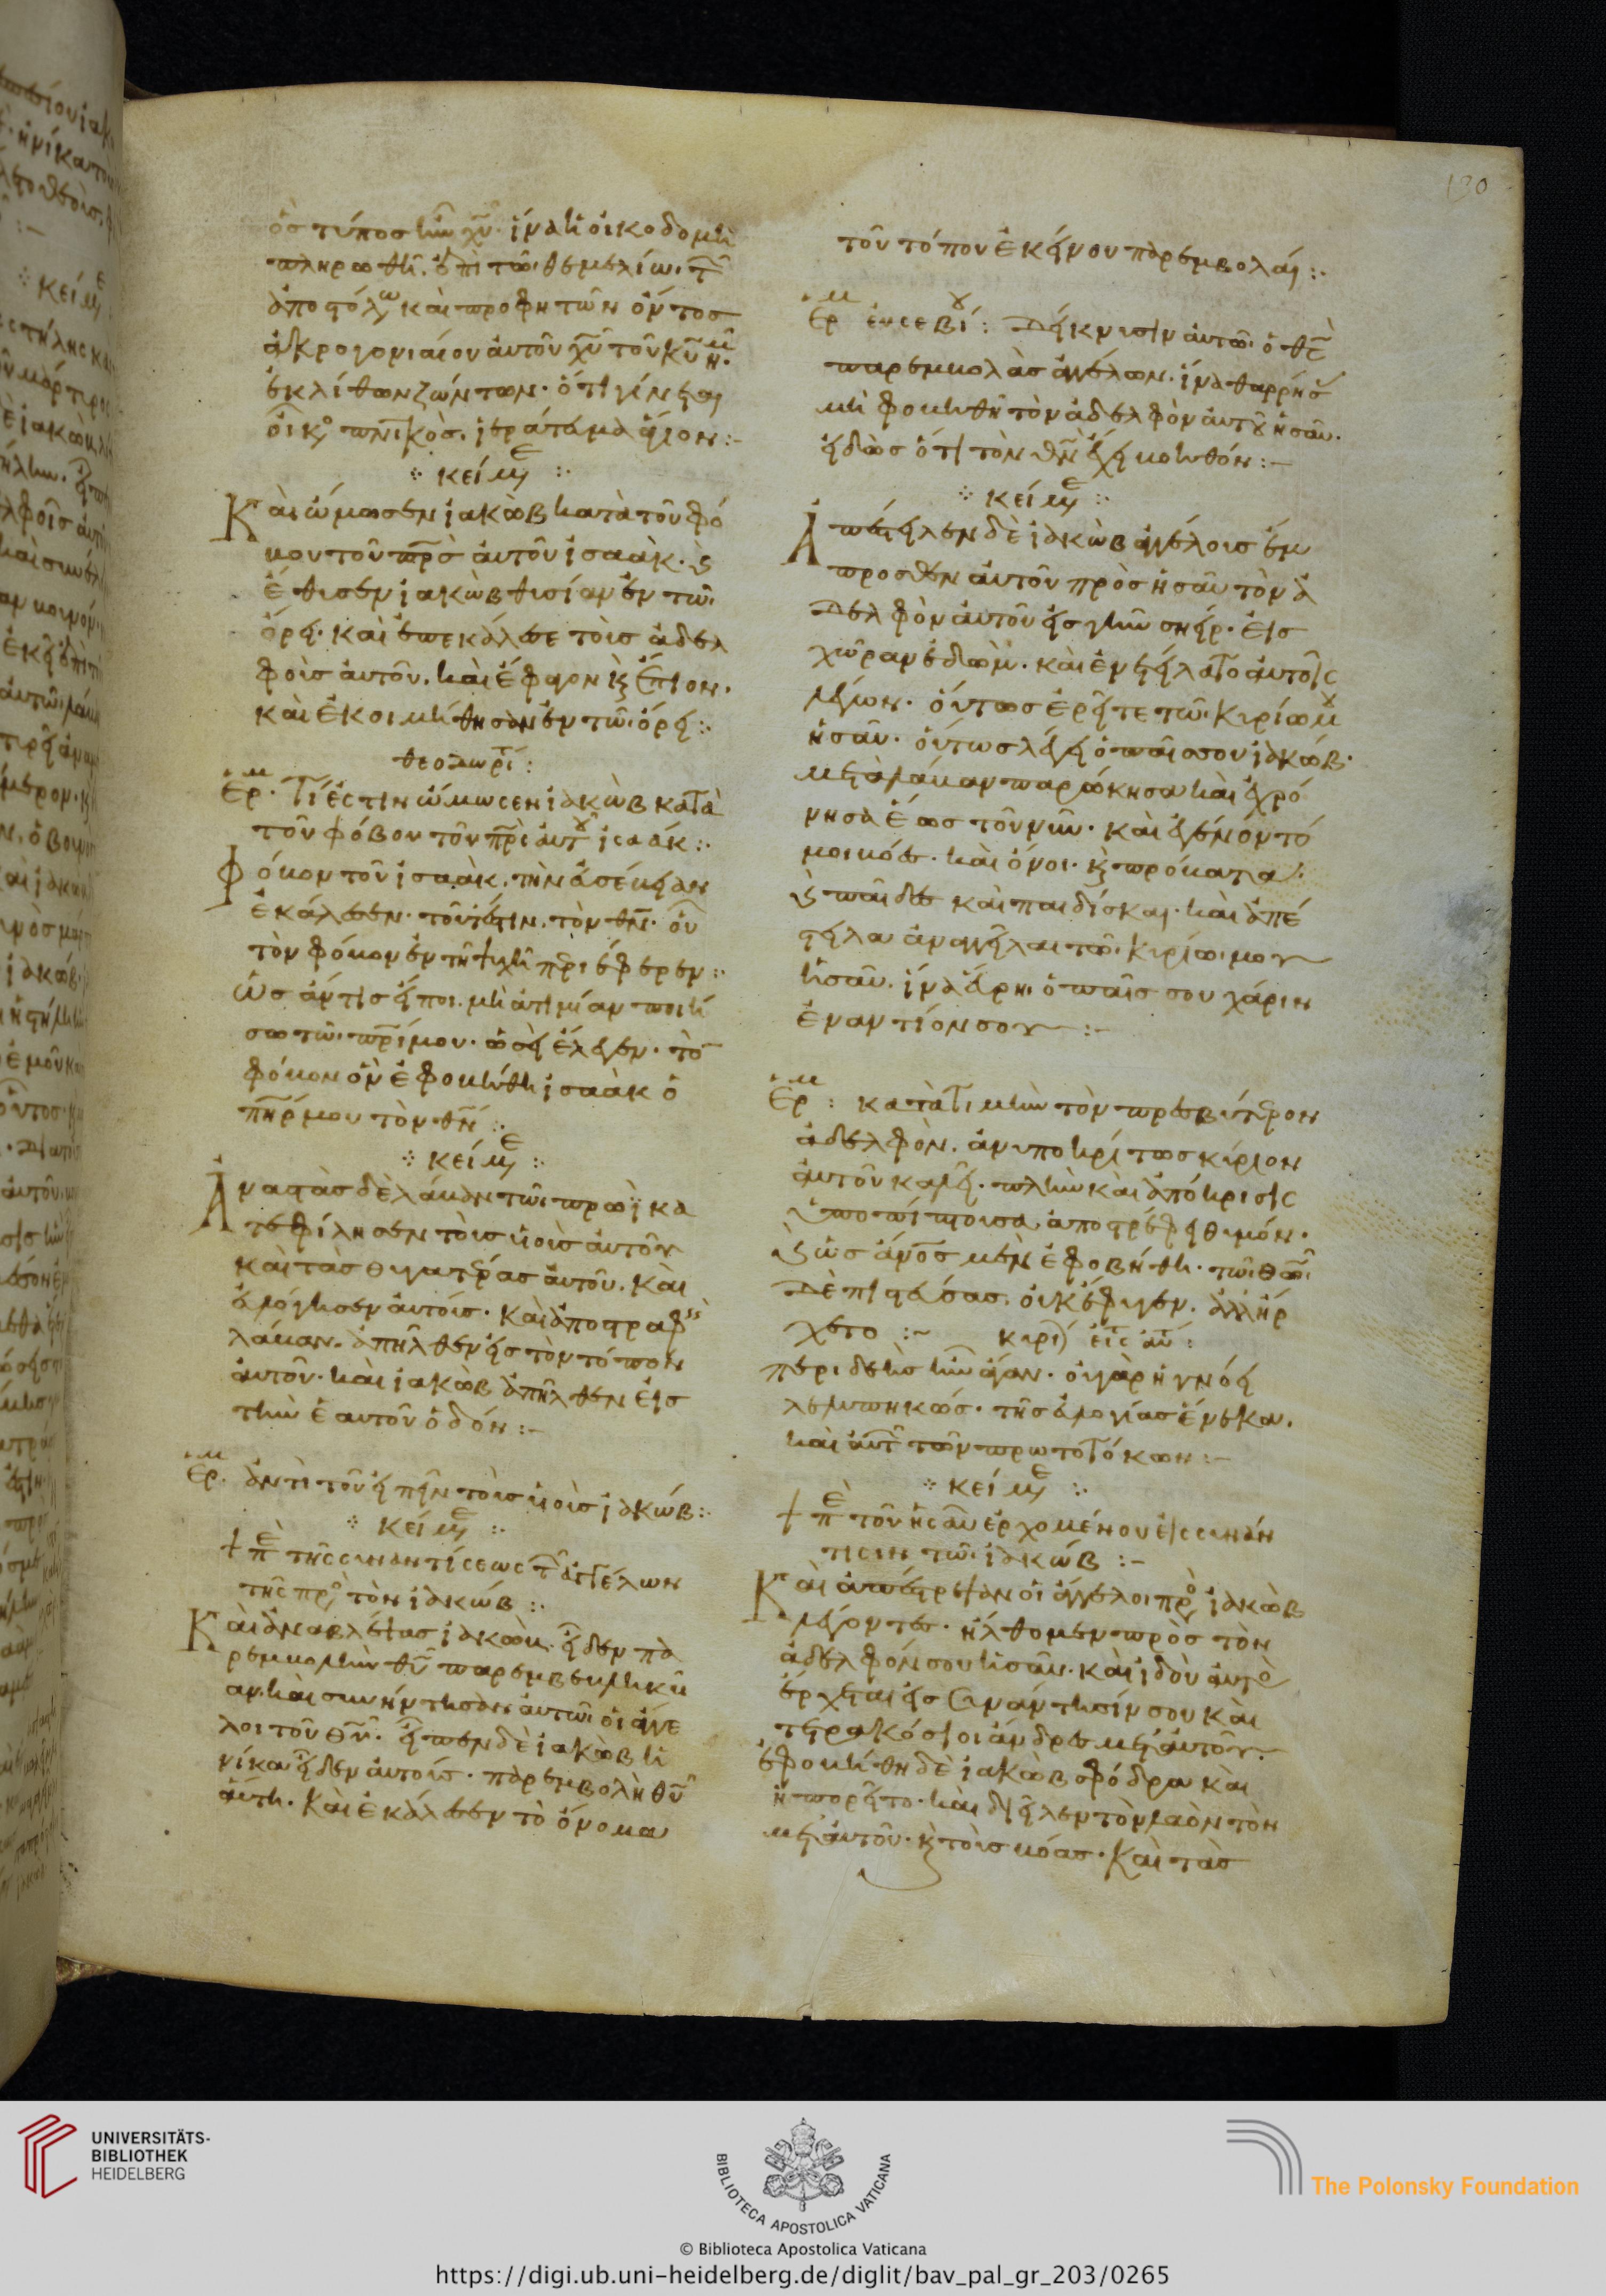 ὃς τύπος ἦν χυ. ἵνα ἡ οἰκοδομὴ
πληρωθῆ. ἐπὶ τῶ θεμελίω. τ
ἀποστόλων καὶ προφητῶν ὄντος
ἀκρογονιαίου αὐτοῦ χυ τοῦ κυ ἡμ.
ἐκ λίθων ζώντων. ὅτι γίνεται
οἶκος πνικὸς. ἱεράτευμα ἅγιον :-
κείμε
Καὶ ὤμοσεν ἰακὼβ κατὰ τοῦ φό
βου τοῦ πρς αὐτοῦ ἰσαάκ. ϗ
ἔθυσεν ἰακὼβ θυσίαν ἐν τῶ
ὄρει. καὶ ἐπεκάλεσε τοὺς ἀδελ
φοὺς αὐτοῦ. καὶ ἔφαγον ϗ ἔπιον.
καὶ ἐκοιμήθησαν ἐν τῶ ὄρει :
θεοδωρί :
Ἑρμ. Τί ἐστιν ὤμωσεν ἰακὼβ κατὰ
τοῦ φόβου τοῦ πρι αὐτου ἰσαάκ :
Φόβον τοῦ ἰσαάκ. τὴν εὐσέβειαν
ἐκάλεσεν. τουτέστιν. τὸν θν. οὗ
τὸν φόβον ἐν τῆ ψυχῆ περιέφερεν :
Ὡς ἄν τις εἴποι. μὴ ἀτιμίαν ποιή
σω τῶ πρί μου. ὡσεὶ ἔλεγεν. τὸ
φόβον ὃν ἐφοβήθη ἰσαὰκ ὁ
πηρ μου τὸν θν :
κείμε
Ἀναστὰς δὲ λάβαν τῶι πρωῒ κα
τεφίλησεν τοὺς υἱοὺς αὐτοῦ
καὶ τὰς θυγατέρας αὐτοῦ. καὶ
εὐλόγησεν αὐτούς. καὶ ἀποστραφεὶς
λάβαν. ἀπῆλθεν εἰς τὸν τόπον
αὐτοῦ. καὶ ἰακὼβ ἀπῆλθεν εἰς
τὴν ἑαυτοῦ ὁδόν :-
Ἑρμ. ἀντὶ τοῦ εἰπεῖν τοὺς υἱοὺς ἰακώβ :
κείμε
+ πε τῆς συναντίσεως τ ἀγγέλων
τῆς πρὸς τὸν ἰακώβ :
Καὶ ἀναβλέψας ἰακὼβ. εἶδεν πα
ρεμβολὴν θυ παρεμβεβληκυῖ
αν. καὶ συνήντησαν αὐτῶ οἱ ἄγγε
λοι τοῦ θυ. εἶπεν δὲ ἰακὼβ ἡ
νίκα εἶδεν αὐτούς. παρεμβολὴ θυ
αὕτη. καὶ ἐκάλεσεν τὸ ὄνομα
τοῦ τόπου ἐκείνου παρεμβολαί :
Ἑρμ εὐσεβίου : Δείκνυσιν αὐτῶ ὁ θς
παρεμβολὰς ἀγγέλων. ἵνα θαρρήσ
μὴ φοβηθῆ τὸν ἀδελφὸν αὐτοῦ ἡσαῦ.
εἰδὼς ὅτι τὸν θν ἔχει βοηθόν :-
κείμε
Ἀπέστειλεν δὲ ἰακὼβ ἀγγέλους ἔμ
προσθεν αὐτοῦ πρὸς ἡσαῦ τὸν ἀ
δελφὸν αὐτοῦ εἰς γῆν σηείρ. εἰς
χώραν ἐδώμ. καὶ ἐνετείλατο αὐτοῖς
λέγων. οὕτως ἐρεῖτε τῶ κυρίω μου
ἡσαῦ. οὕτως λέγει ὁ παῖς σου ἰακώβ.
μετὰ λάβαν παρώκησα καὶ ἐχρό
νησα ἕως τοῦ νῦν. καὶ ἐγένοντό
μοι βόες. καὶ ὄνοι. ϗ πρόβατα.
ϗ παῖδες καὶ παιδίσκαι. καὶ ἀπέ
στειλα ἀναγγεῖλαι τῶ κυρίω μου
ἡσαῦ. ἵνα εὕρη ὁ παῖς σου χάριν
ἐναντίον σου :-
Ἑρμ : κατὰ τιμὴν τὸν πρεσβύτερον
ἀδελφὸν. ἀνυποκρίτως κύριον
αὐτοῦ καλεῖ. πλὴν καὶ ἀπόκρισις
ὑποπίπτουσα ἀποστρέφει θυμόν.
ϗ ὡς ἄνος μὲν ἐφοβήθη. τῶ θῶ
δὲ πιστεύσας. οὐκ ἔφυγεν. ἀλλ' ἤρ
χετο :~ κυρί εἰς αὐ :
περιδεὴς ἦν ἄγαν. οὐ γὰρ ἠγνόει
λελυπηκώς. τῆς εὐλογίας ἕνεκα.
καὶ αὐτ τῶν πρωτοτόκων :-
κείμε
+ πε τοῦ ἡσαῦ ἐρχομένου εἰς συνάν
τισιν τῶ ἰακώβ :-
Καὶ ἀπέστρεψαν οἱ ἄγγελοι πρὸς ἰακὼβ
λέγοντες. ἤλθομεν πρὸς τὸν
ἀδελφόν σου ἡσαῦ. καὶ ἰδοὺ αὐτὸς
ἔρχεται εἰς συνάντησίν σου καὶ
τετρακόσιοι ἄνδρες μετ' αὐτοῦ.
ἐφοβήθη δὲ ἰακὼβ σφόδρα καὶ
ἠπορεῖτο. καὶ διεῖλεν τὸν λαὸν τὸν
μετ' αὐτοῦ. ϗ τοὺς βόας. καὶ τὰς
130
UNIVERSITÄTS-
BIBLIOTHEK
HEIDELBERG
BIBLIOTECA APOSTOLICA VATICANA
The Polonsky Foundation
© Biblioteca Apostolica Vaticana
https://digi.ub.uni-heidelberg.de/diglit/bav_pal_gr_203/0265